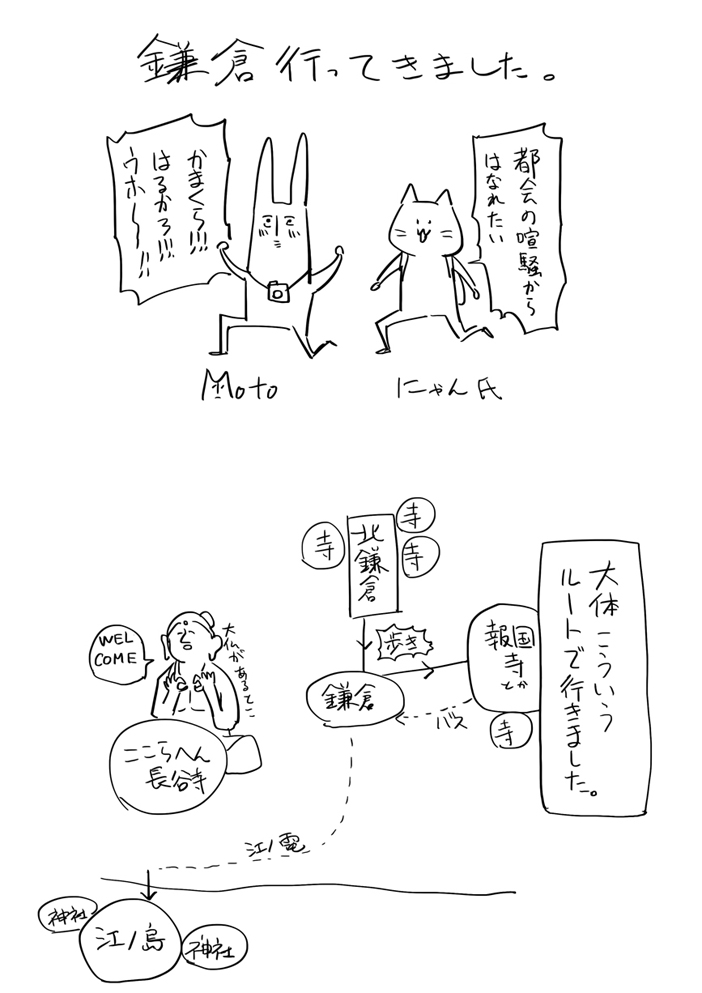 鎌倉行ってきました。
都会の喧騒から
はなれたい
かまくら!!!
はるかろ!!!
ウホ〜〜!!
Moto
にゃん氏
大体こういう
ルートで行きました。
寺
寺
寺
北鎌倉
歩き
報国
寺とか
寺
鎌倉
バス
大仏があるとこ
WEL
COME
ここらへん
長谷寺
江ノ電
神社
江ノ島
神社